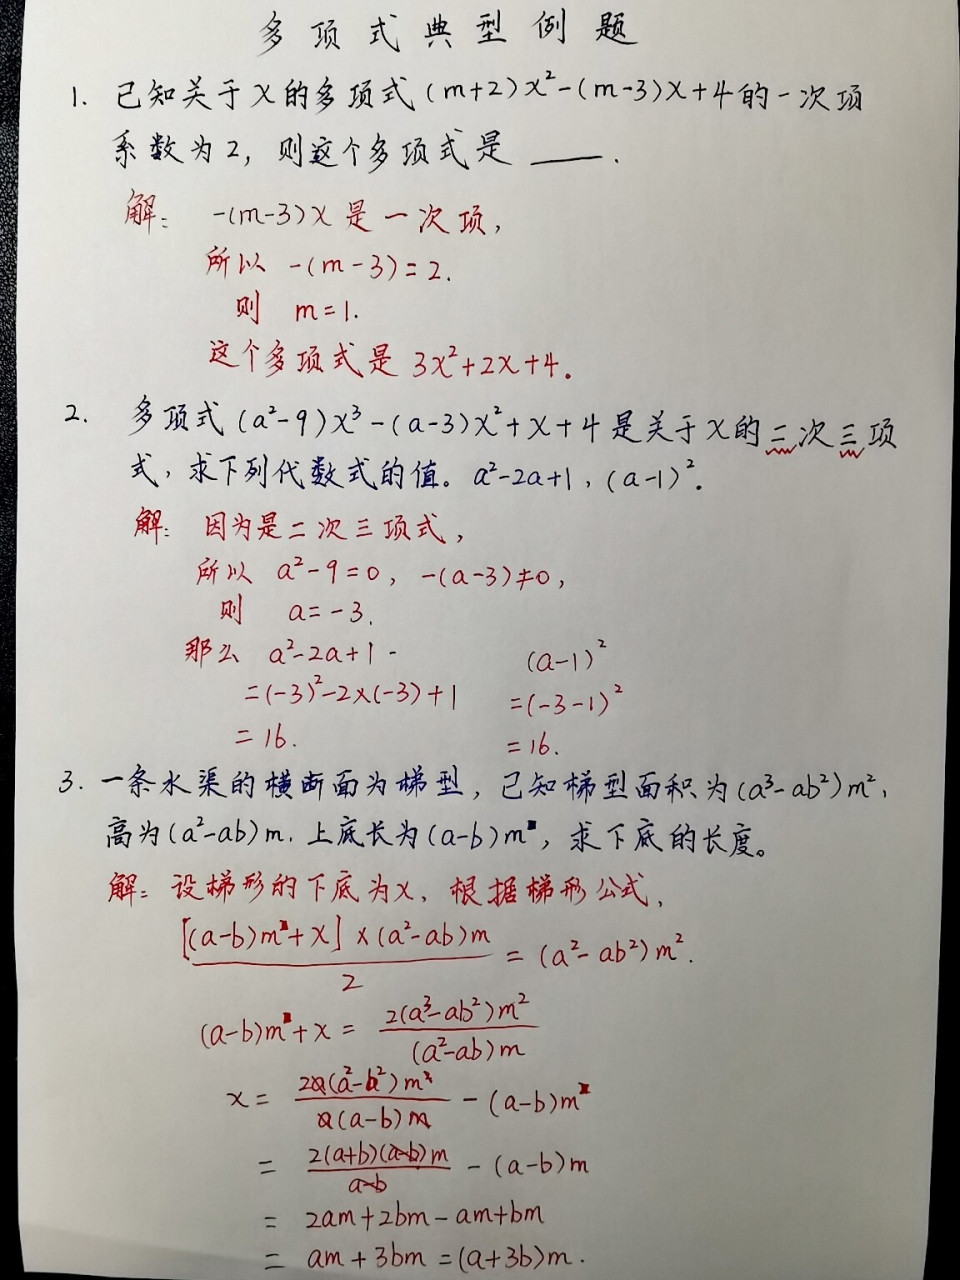 多项式典型例题
1. 已知关于x的多项式(m+2)x²-(m-3)x+4的一次项
系数为2,则这个多项式是 ____.
解: -(m-3)x是一次项,
所以 -(m-3)=2.
则 m=1.
这个多项式是 3x²+2x+4.
2. 多项式(a²-9)x³-(a-3)x²+x+4是关于x的二次三项
式,求下列代数式的值。a²-2a+1,(a-1)².
解: 因为是二次三项式,
所以 a²-9=0, -(a-3)≠0,
则 a=-3.
那么 a²-2a+1 (a-1)²
=(-3)²-2×(-3)+1 =(-3-1)²
=16. =16.
3. 一条水渠的横断面为梯型,已知梯型面积为(a³-ab²)m²,
高为(a²-ab)m.上底长为(a-b)m,求下底的长度。
解: 设梯形的下底为x,根据梯形公式,
[(a-b)m+x]×(a²-ab)m
= (a²-ab²)m².
2
2(a³-ab²)m²
(a-b)m+x =
(a²-ab)m
2a(a²-b²)m²
x = - (a-b)m
a(a-b)m
2(a+b)(a-b)m
= - (a-b)m
a-b
= 2am+2bm-am+bm
= am+3bm=(a+3b)m.